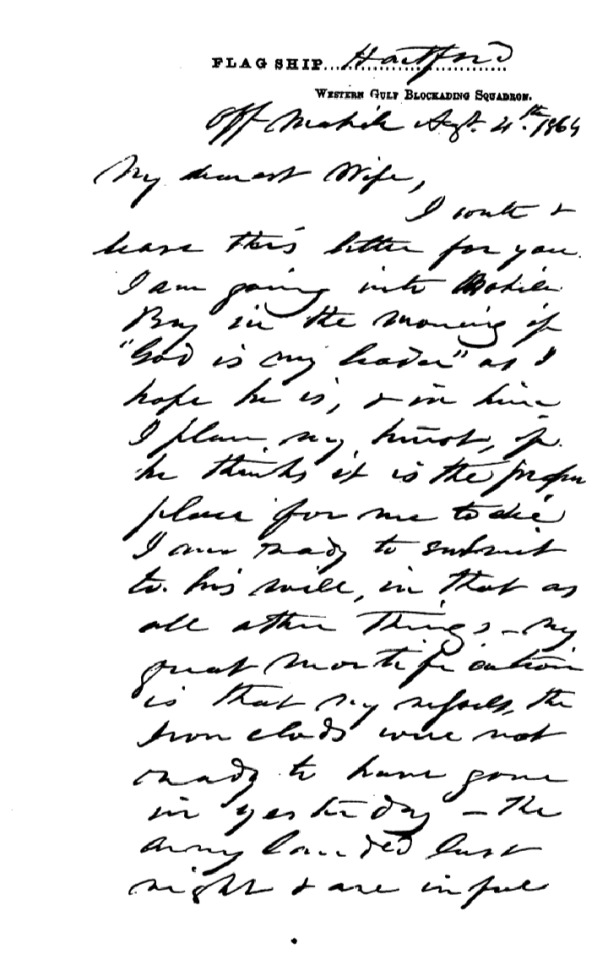 FLAG SHIP Hartford
WESTERN GULF BLOCKADING SQUADRON.
Off Mobile Augt. 4th. 1864
My dearest Wife,
I write &
leave this letter for you.
I am going into Mobile
Bay in the morning if
"God is my leader" as I
hope he is, & in him
I place my trust, if
he thinks it is the proper
place for me to die
I am ready to submit
to his will, in that as
all other things - my
great mortification
is that my vessels, the
Iron clads were not
ready to have gone
in yesterday - The
Army landed last
night & are in full